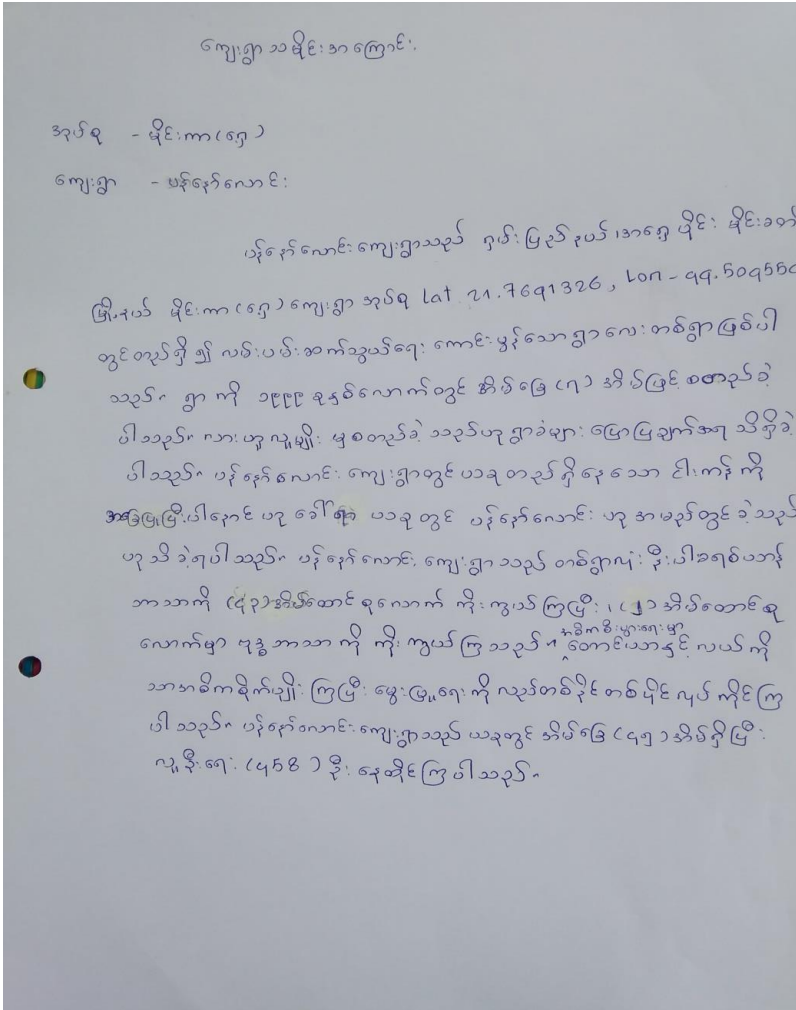 ကျေးရွာသမိုင်းအကြောင်း.
အုပ်စု - မိုင်းကာ(ရှေ့)
ကျေးရွာ - ပန်နော်လောင်း
ပန်နော်လောင်းကျေးရွာသည် ရှမ်းပြည်နယ်၊အရှေ့ပိုင်း မိုင်းခတ်
မြို့နယ် မိုင်းကာ(ရှေ့)ကျေးရွာအုပ်စု Lat 21.7691326, Lon - 99.509550
တွင်တည်ရှိ၍ လမ်းပမ်းဆက်သွယ်ရေး ကောင်းမွန်သောရွာလေးတစ်ရွာဖြစ်ပါ
သည်။ ရွာကို ၁၉၉၉ ခုနှစ်လောက်တွင် အိမ်ခြေ(၇)အိမ်ဖြင့် စတည်ခဲ့
ပါသည်။ လားဟူလူမျိုး မှစတည်ခဲ့သည်ဟု ရွာခံများ ပြောပြချက်အရ သိရှိခဲ့
ပါသည်။ ပန်နော်လောင်း ကျေးရွာတွင်ယခုတည်ရှိနေသော ငါးကန်ကို
အခြေပြုပြီးပါနောင် ဟုခေါ်ရာ ယခုတွင် ပန်နော်လောင်း ဟုအမည်တွင်ခဲ့သည်
ဟုသိခဲ့ရပါသည်။ ပန်နော်လောင်း ကျေးရွာသည် တစ်ရွာလုံးနီးပါခရစ်ယာန်
ဘာသာကို (၄၃)အိမ်ထောင်စုလောက် ကိုးကွယ်ကြပြီး၊(၂)အိမ်ထောင်စု
လောက်မှာ ဗုဒ္ဓဘာသာကို ကိုးကွယ်ကြသည်။ အဓိကစီးပွားရေးမှာ တောင်ယာနှင့်လယ်ကို
သာအဓိကစိုက်ပျိုးကြပြီး မွေးမြူရေးကိုလည်တစ်နိုင်တစ်ပိုင်လုပ်ကိုင်ကြ
ပါသည်။ ပန်နော်လောင်းကျေးရွာသည် ယခုတွင်အိမ်ခြေ(၄၅)အိမ်ရှိပြီး
လူဦးရေ (458) ဦး နေထိုင်ကြပါသည်။